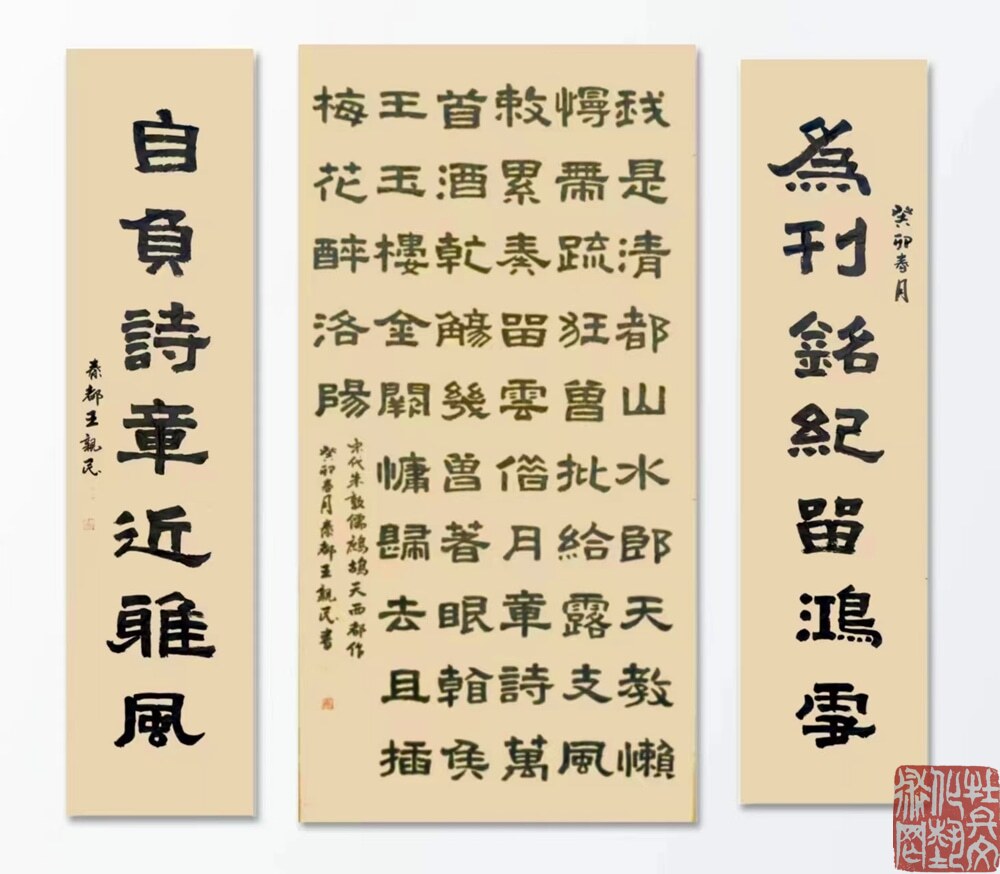 為刊銘紀留鴻雪
癸卯春月
我是清都山水郎天教懶
慢帶疏狂曾批給露支風
敕累奏留雲借月章詩萬
首酒乾觴幾曾著眼看侯
王玉樓金闕慵歸去且插
梅花醉洛陽
宋代朱敦儒鷓鴣天西都作
癸卯春月秦都王親民書
自負詩章近雅風
秦都王親民